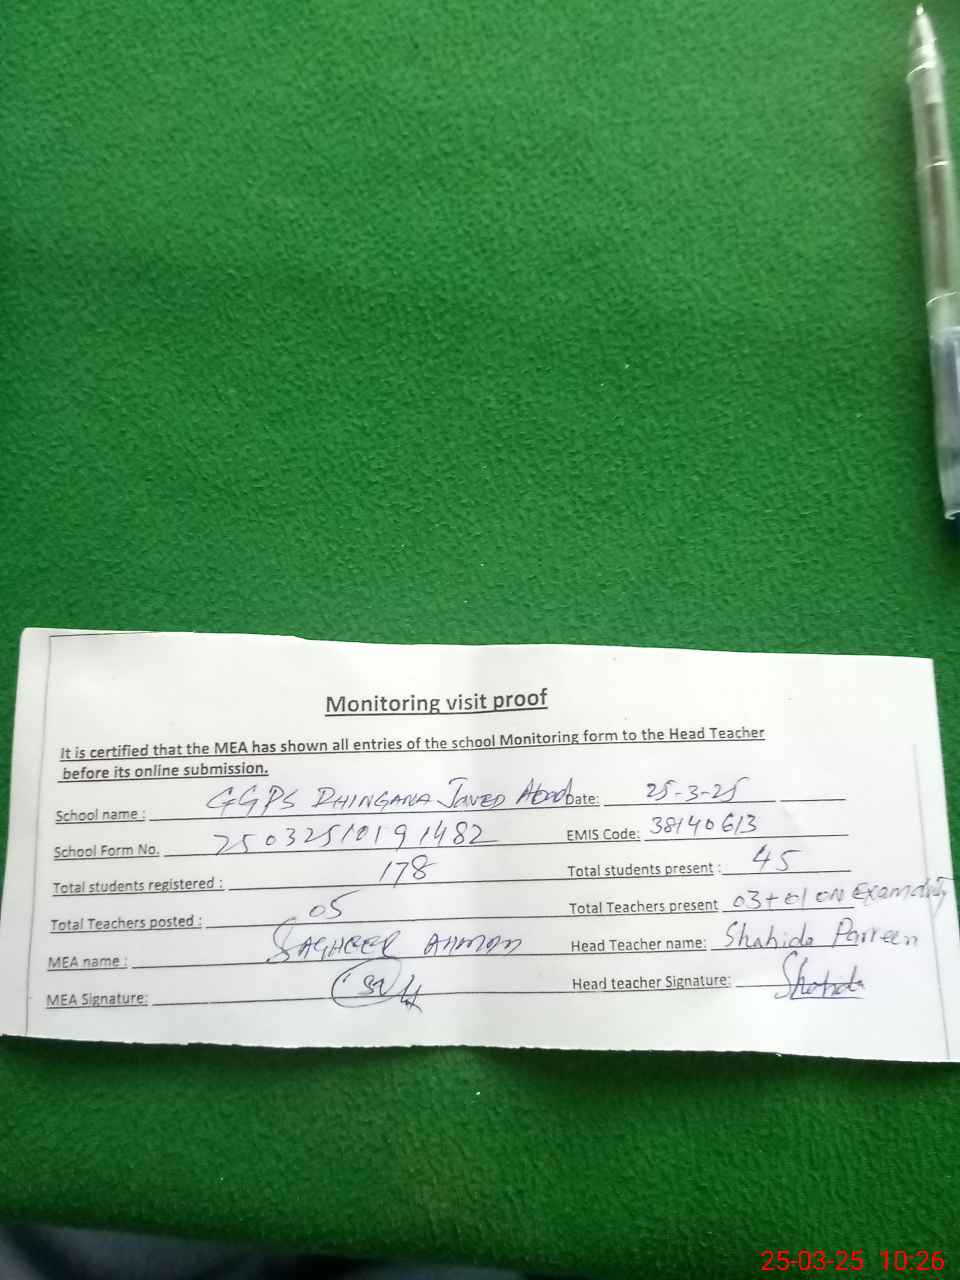 Monitoring visit proof
It is certified that the MEA has shown all entries of the school Monitoring form to the Head Teacher
before its online submission.
School name : GGPS DHINGANA JAVED Abad Date: 25-3-25
School Form No. 25032510191482 EMIS Code: 38140613
Total students registered : 178 Total students present : 45
Total Teachers posted : 05 Total Teachers present 03+01 ON Exam duty
MEA name : SAGHEER AHMAD Head Teacher name: Shahida Parveen
MEA Signature: Head teacher Signature: Shahida
25-03-25 10:26